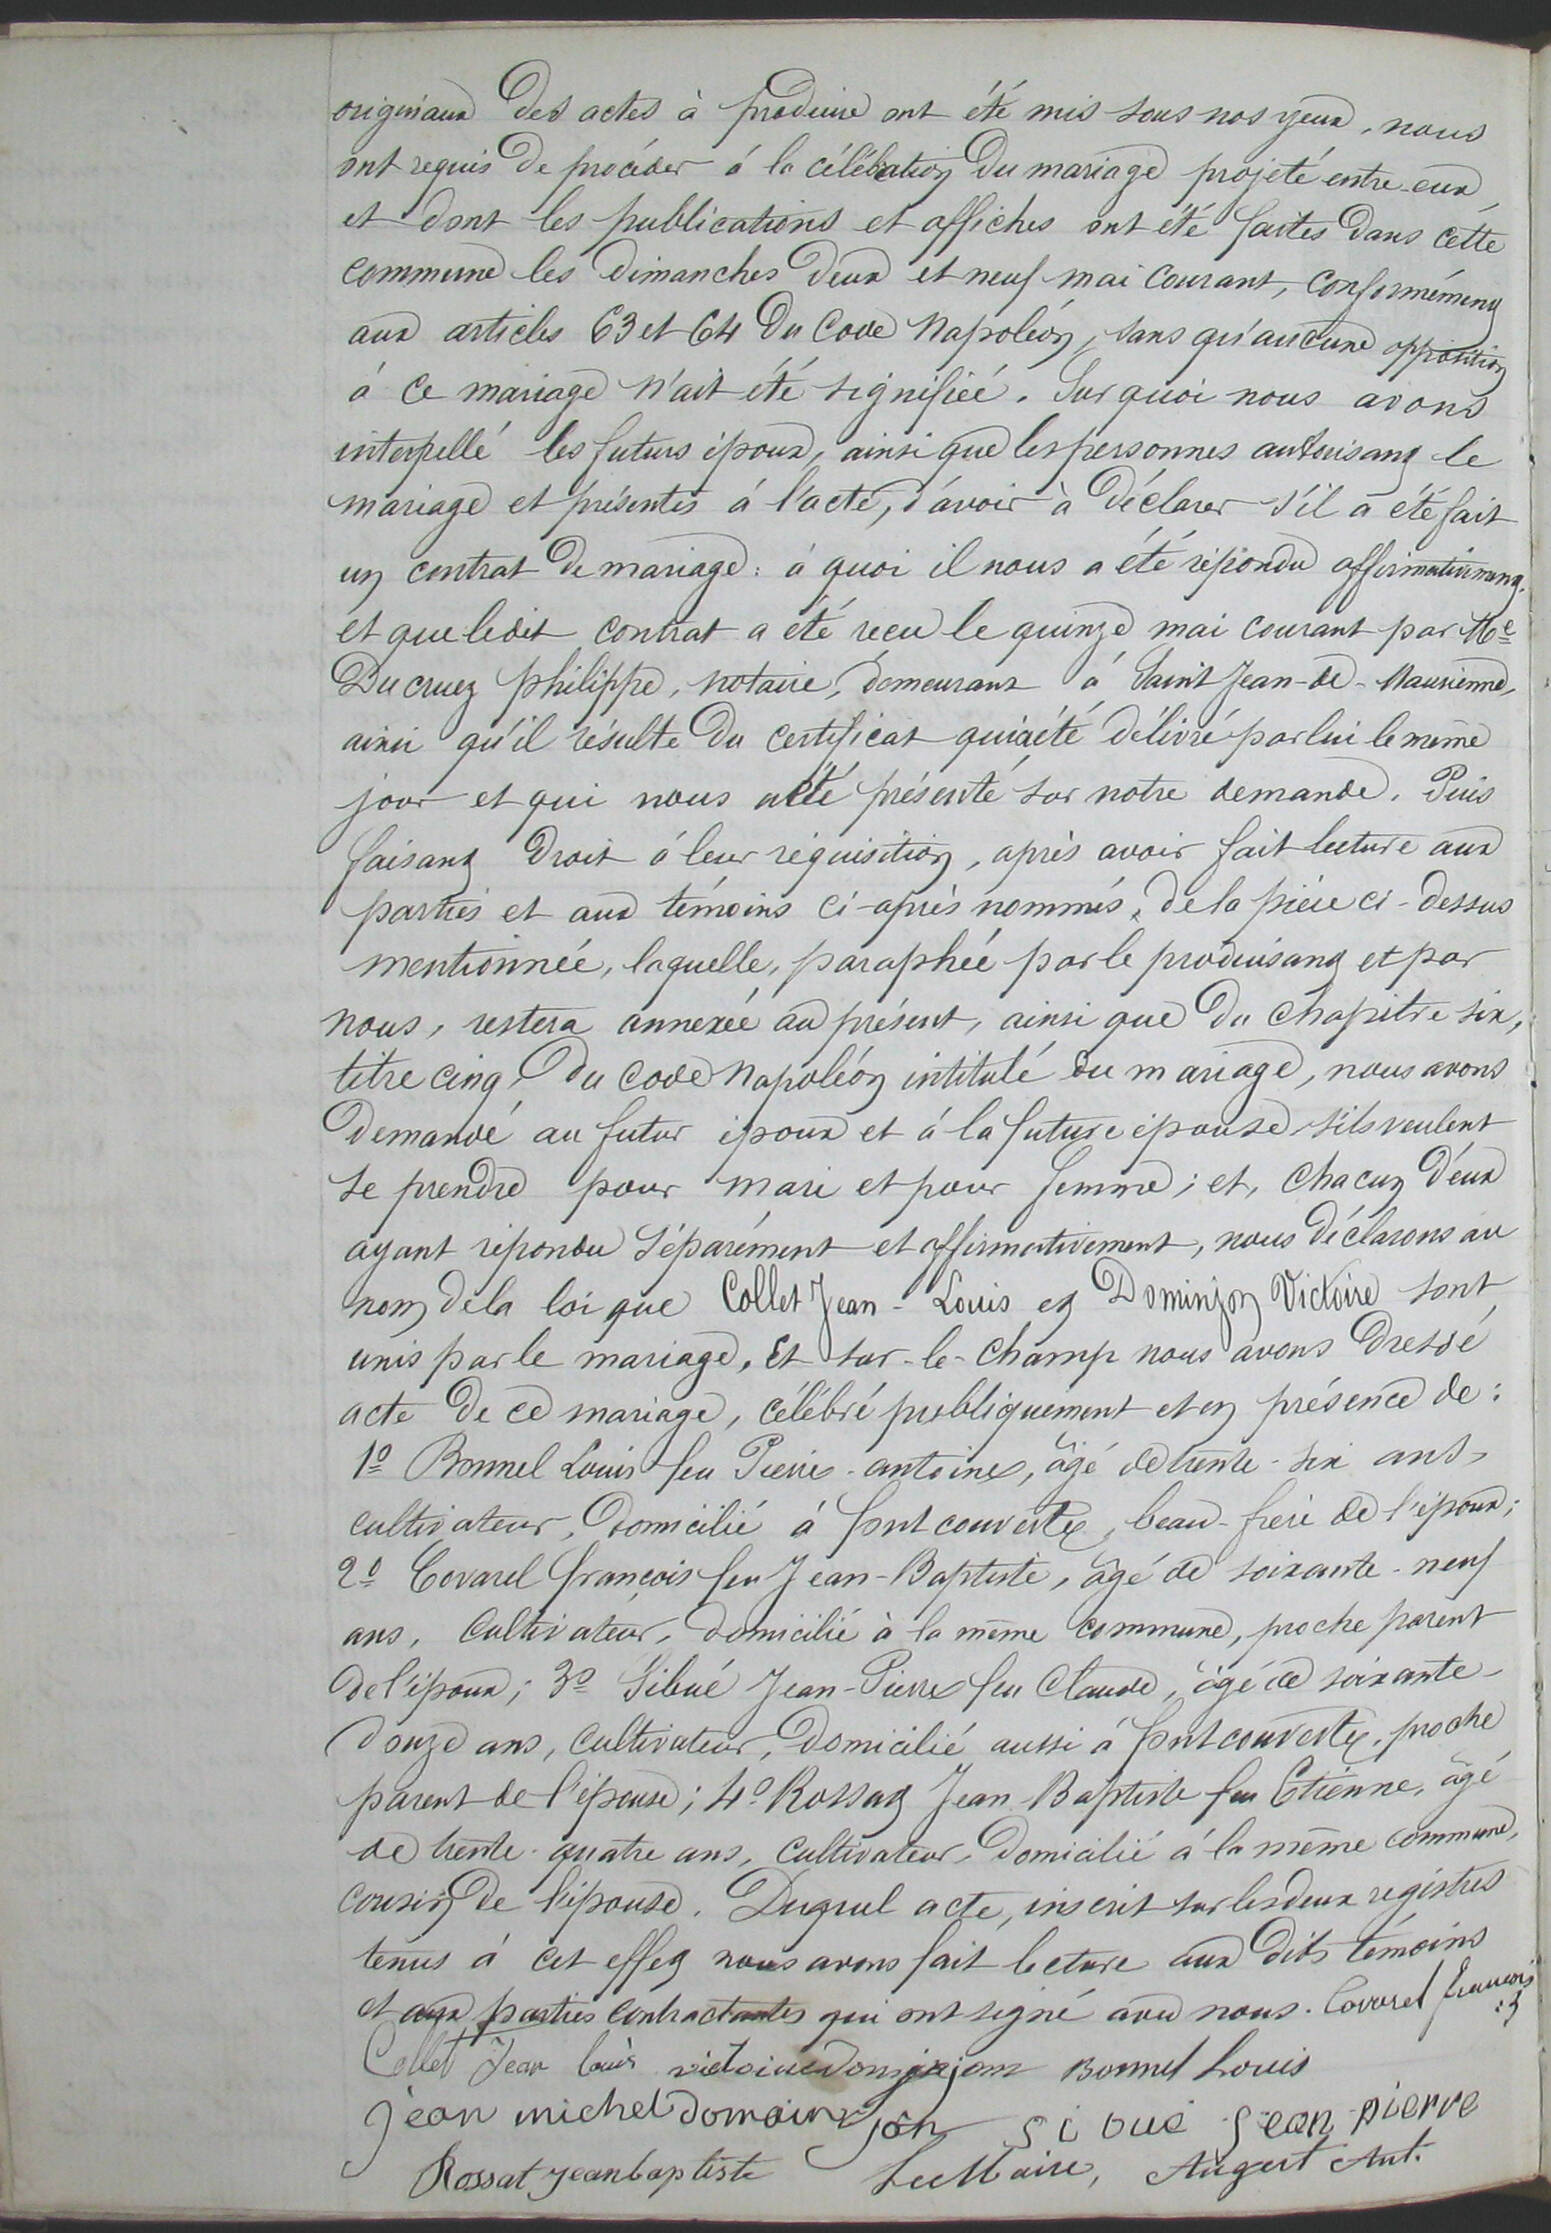 originaux des actes à produire ont été mis sous nos yeux, nous
ont requis de procéder à la célébration du mariage projeté entre eux
et dont les publications et affiches ont été faites dans cette
commune les dimanches deux et neuf mai courant, conformément
aux articles 63 et 64 du Code Napoléon, sans qu'aucune opposition
à ce mariage n'ait été signifiée. Sur quoi nous avons
interpellé les futurs époux, ainsi que les personnes autorisant le
mariage et présentes à l'acte, d'avoir à déclarer s'il a été fait
un contrat de mariage : à quoi il nous a été répondu affirmativement.
et que ledit contrat a été reçu le quinze mai courant par Me
Ducruez Philippe, notaire, demeurant à Saint Jean-de-Maurienne,
ainsi qu'il résulte du certificat qui a été délivré par lui le même
jour et qui nous a été présenté sur notre demande. Puis
faisant droit à leur réquisition, après avoir fait lecture aux
parties et aux témoins ci-après nommés, de la pièce ci-dessus
mentionnée, laquelle, paraphée par le produisant et par
nous, restera annexée au présent, ainsi que du chapitre six,
titre cinq, du Code Napoléon intitulé du mariage, nous avons
demandé au futur époux et à la future épouse s'ils veulent
se prendre pour mari et pour femme ; et, chacun d'eux
ayant répondu séparément et affirmativement, nous déclarons au
nom de la loi que Collet Jean-Louis et Dominjon Victoire sont
unis par le mariage, Et sur-le-champ nous avons dressé
acte de ce mariage, célébré publiquement et en présence de :
1o Bonnel Louis feu Pierre-antoine, âgé de trente-six ans,
cultivateur, domicilié à fontcouverte, beau-frère de l'époux ;
2o Covarel françois feu Jean-Baptiste, âgé de soixante-neuf
ans, cultivateur, domicilié à la même commune, proche parent
de l'époux ; 3o Sibué Jean-Pierre feu Claude, âgé de soixante-
douze ans, cultivateur, domicilié aussi à fontcouverte, proche
parent de l'épouse ; 4o Rossat Jean Baptiste feu Etienne, âgé
de trente-quatre ans, cultivateur, domicilié à la même commune,
cousin de l'épouse. Duquel acte, inscrit sur les deux registres
tenus à cet effet nous avons fait lecture aux dits témoins
et aux parties contractantes qui ont signé avec nous. Covarel françois
Collet Jean louis victoire dominjon Bonnel Louis
jean michel domainjon sibué jean pierre
Rossat jeanbaptiste Le Maire, Augert Ant.